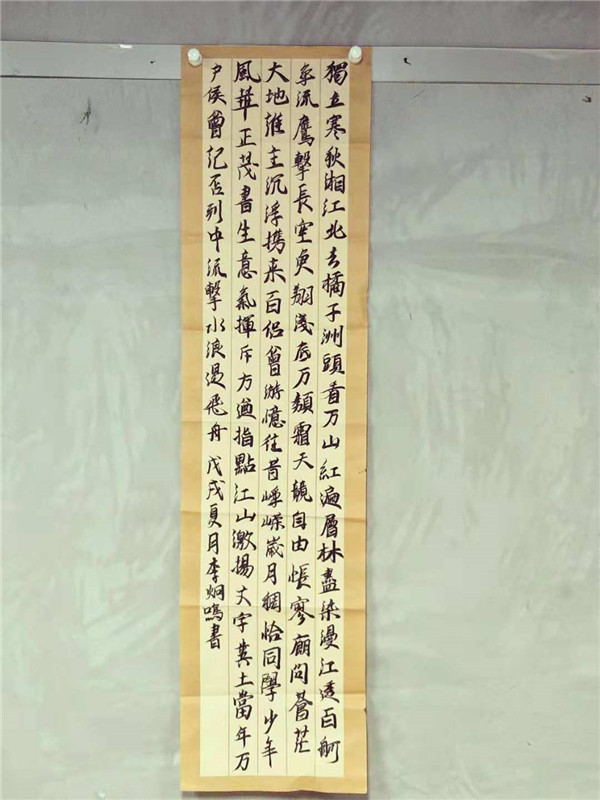 獨立寒秋湘江北去橘子洲頭看万山紅遍層林盡染漫江透百舸
爭流鷹擊長空魚翔淺底万類霜天競自由悵寥廓問蒼茫
大地誰主沉浮携来百侣曾游憶往昔崢嶸歲月稠恰同學少年
風華正茂書生意氣揮斥方遒指點江山激揚文字糞土當年万
户侯曾記否到中流擊水浪遏飛舟 戊戌夏月李炯鳴書